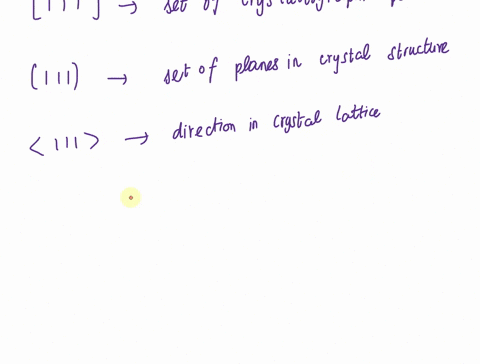 [111] → set of
(111) → set of planes in crystal structure
<111> → direction in crystal lattice